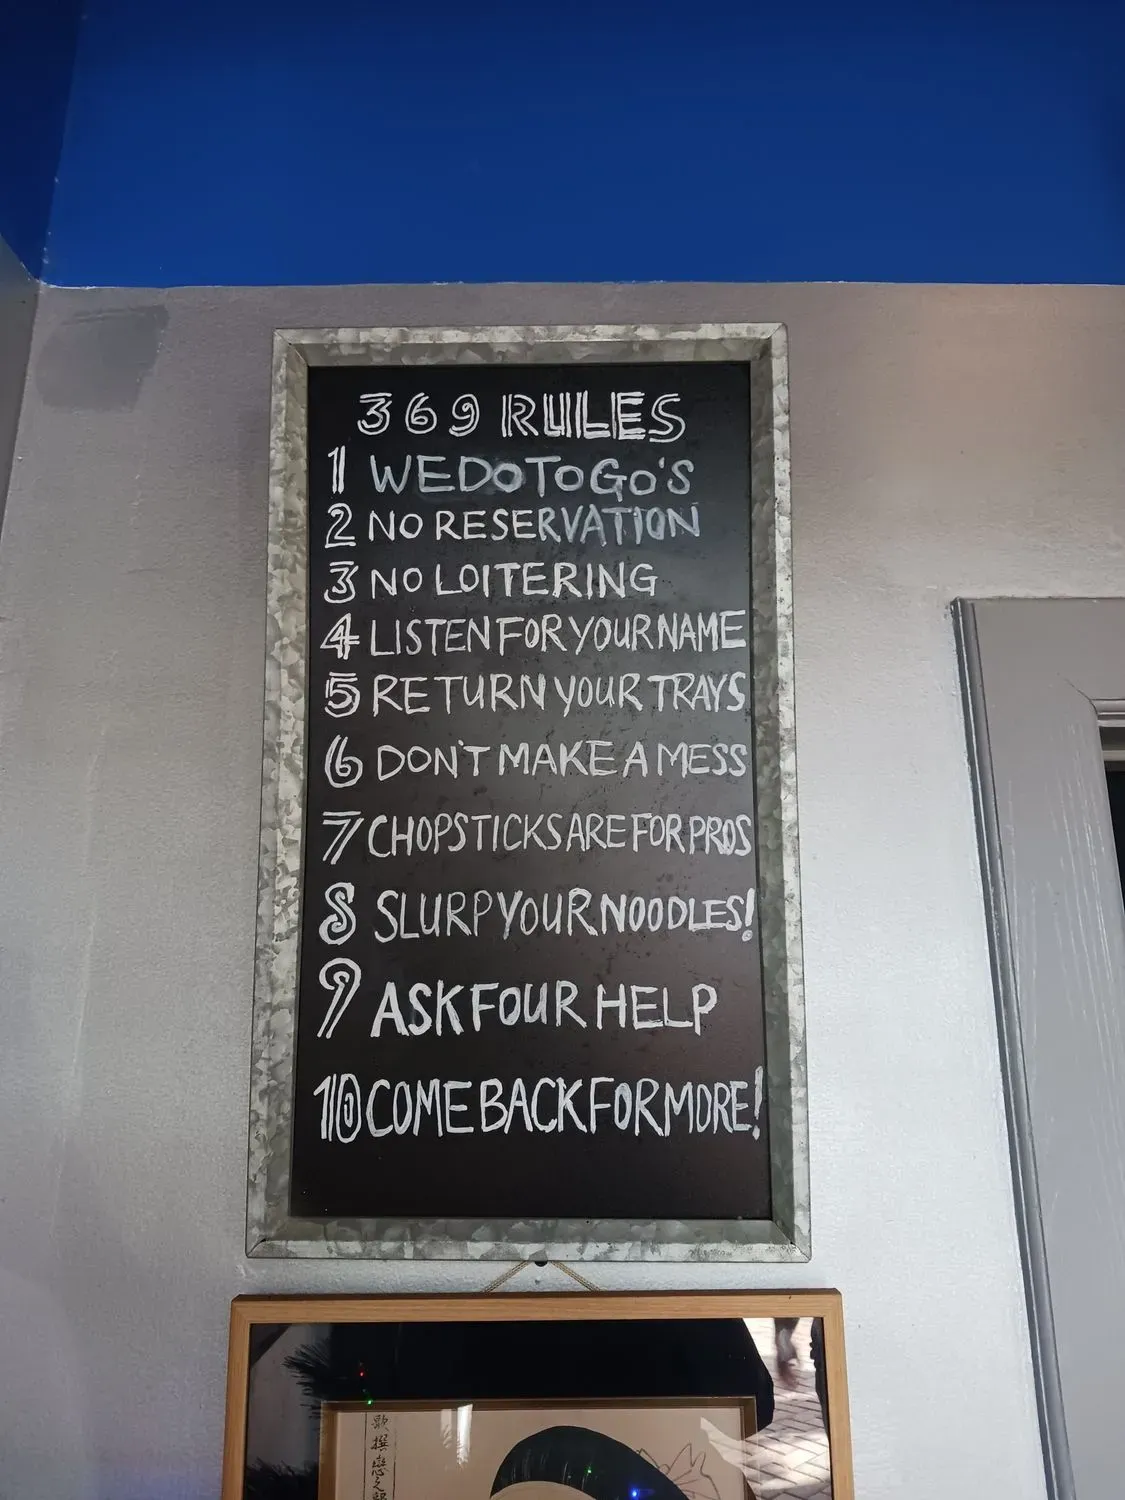 369 RULES
1 WE DO TO GO'S
2 NO RESERVATION
3 NO LOITERING
4 LISTEN FOR YOUR NAME
5 RETURN YOUR TRAYS
6 DON'T MAKE A MESS
7 CHOPSTICKS ARE FOR PROS
8 SLURP YOUR NOODLES!
9 ASK FOUR HELP
10 COME BACK FOR MORE!
歌撰戀之